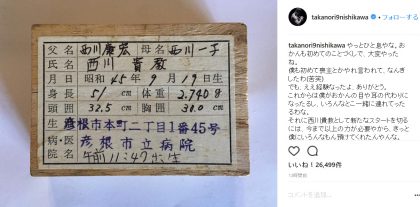 父名 西川廣宏 母名 西川一子
氏名 西川貴教
月日 昭和45年9月19日生
身長 51cm 体重 2.740g
頭囲 32.5cm 胸囲 30.0cm
生 彦根市本町二丁目1番45号
病医院 彦根市立病院
午前11:47出生
takanori9nishikawa • フォローする
takanori9nishikawa やっとひと息やな。おかんも初めてのことづくしで、大変やったね。
僕も初めて喪主とかやれ言われて、なんぎしたわ(苦笑)
でも、ええ経験なったよ、ありがとう。
これからは僕がおかんの目や耳の代わりになったるし、いろんなとこ一緒に連れてったるわな。
それに西川貴教として新たなスタートを切るには、今まで以上の力が必要やから、きっと僕にいろんなもん預けてくれたんやんな。
いいね！26,499件
コメントを追加...